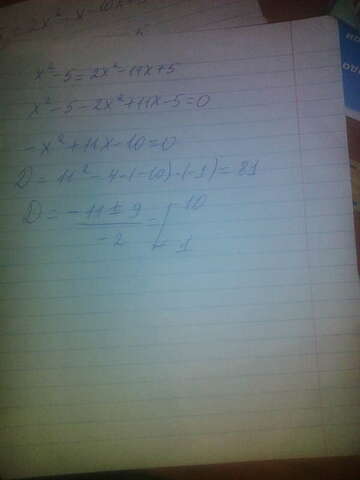 2x² - x - 10x + 5
x² - 5 = 2x² - 11x + 5
x² - 5 - 2x² + 11x - 5 = 0
-x² + 11x - 10 = 0
D = 11² - 4·(-10)·(-1) = 81
D = (-11 ± 9)/(-2) = [10
1